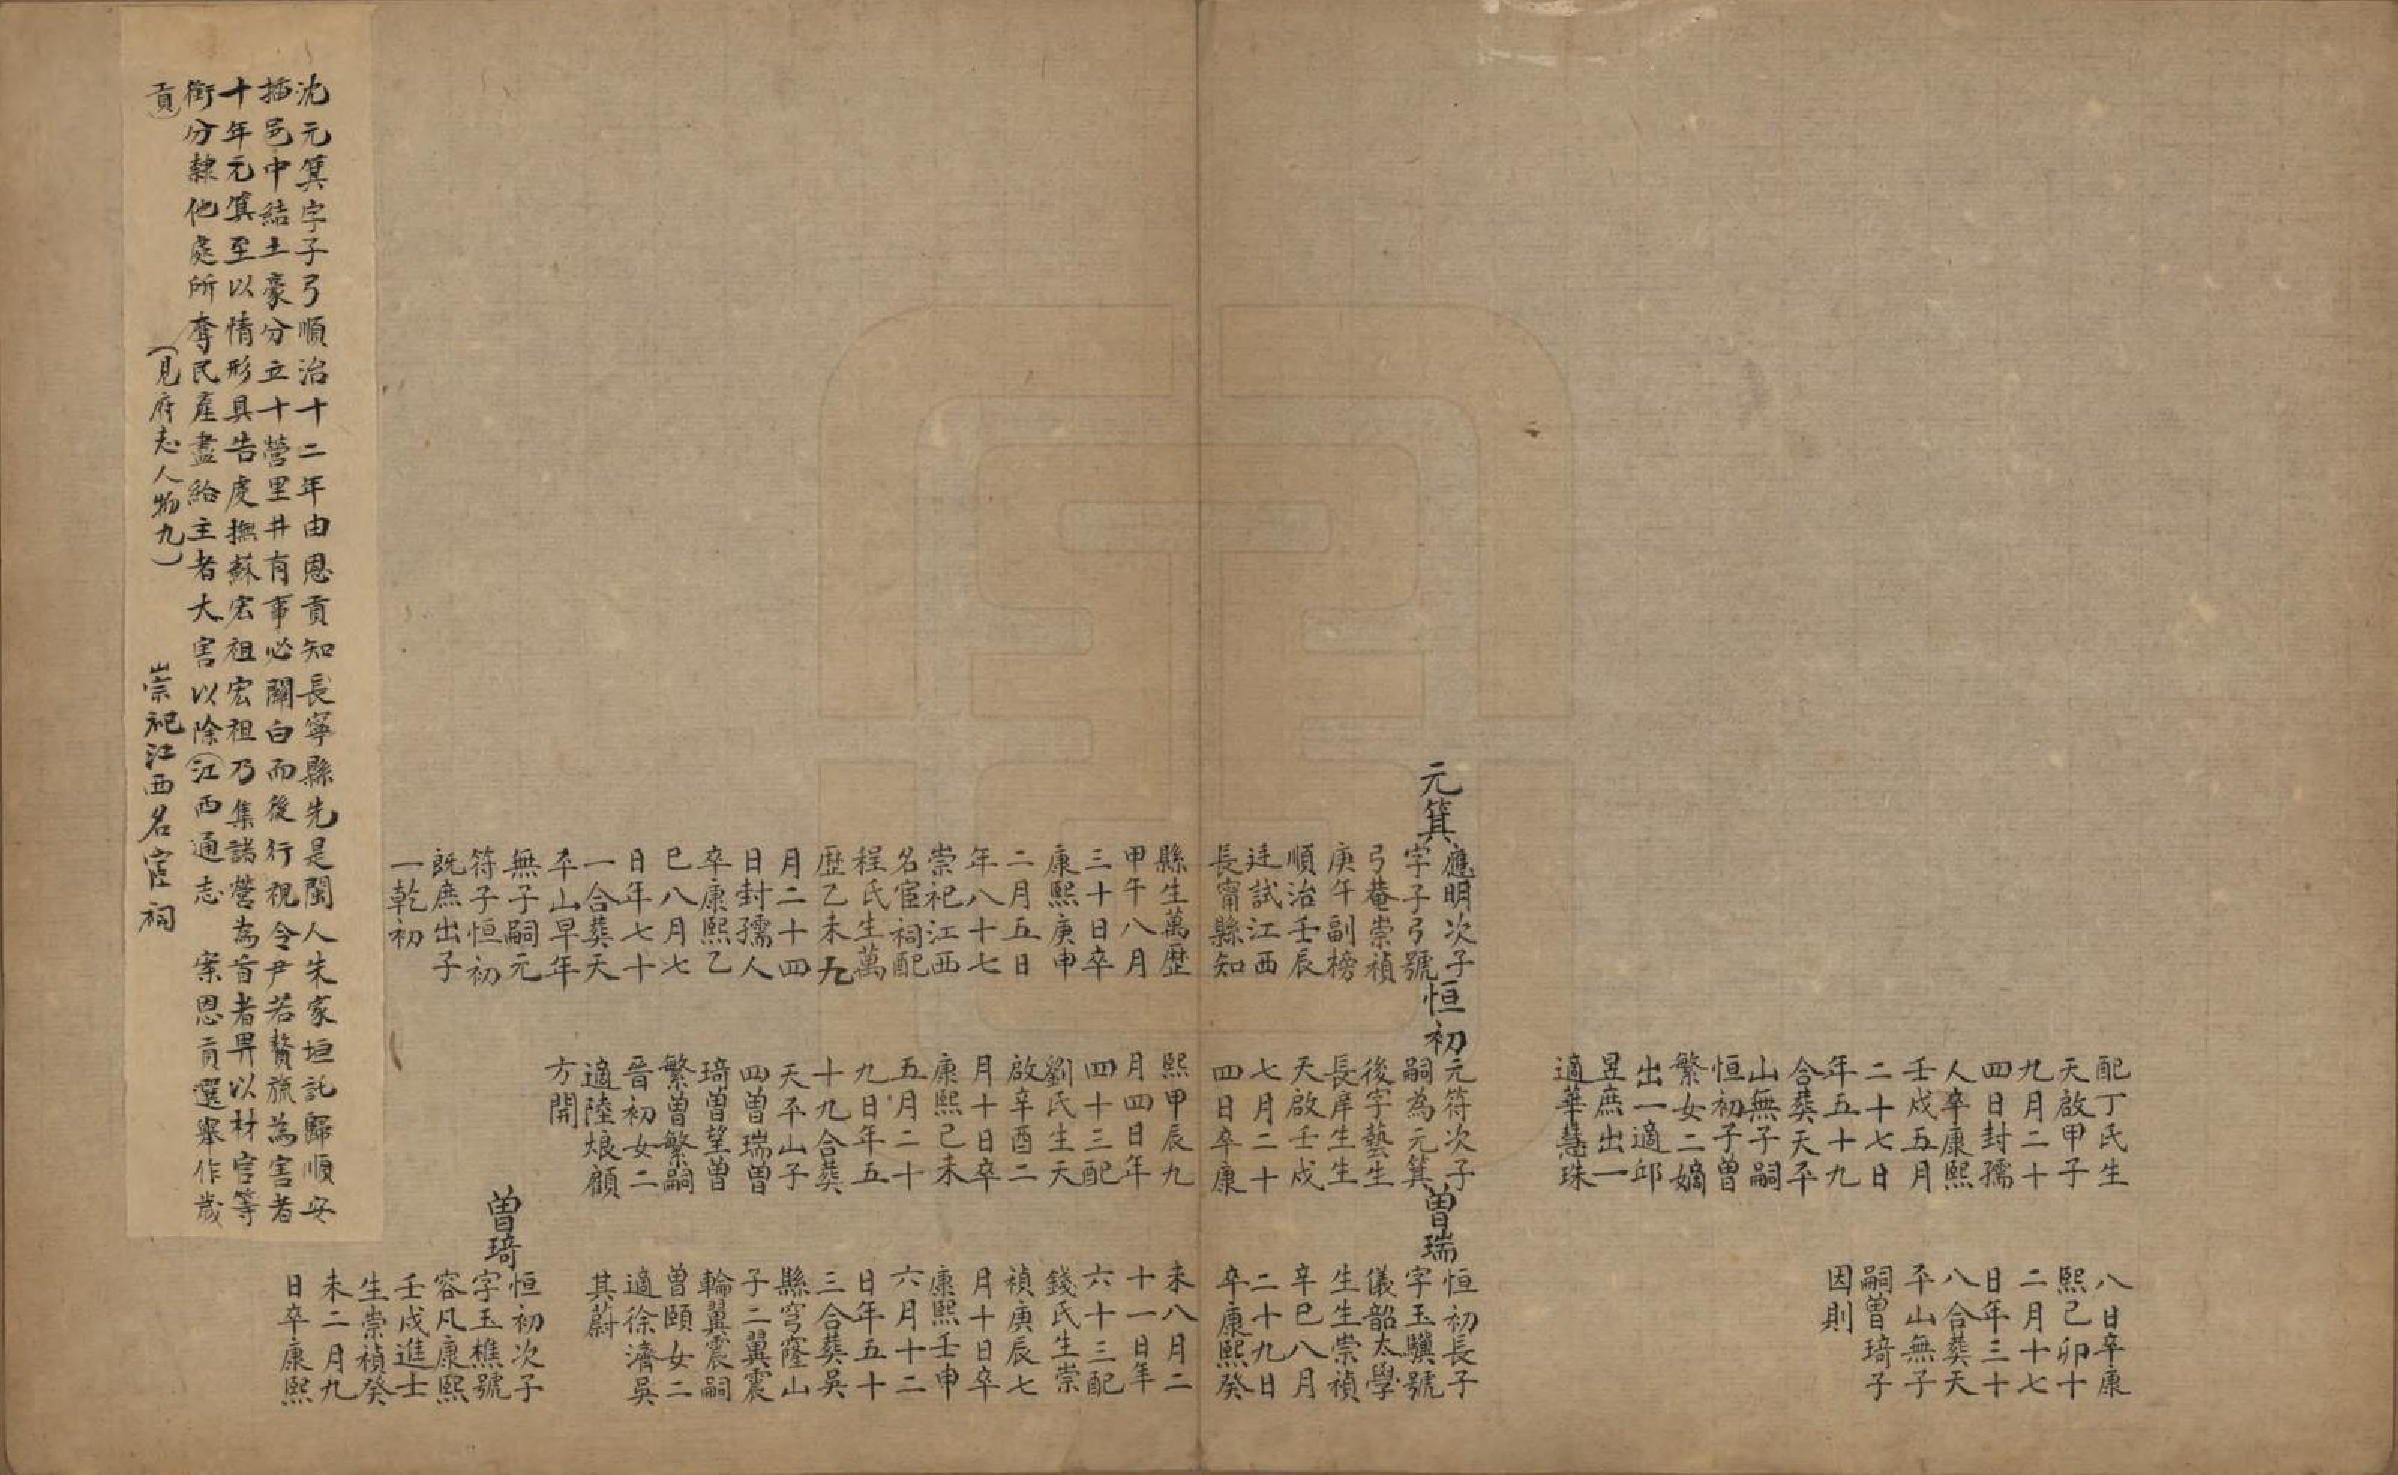 配丁氏生
天啟甲子
九月二十
四日封孺
人卒康熙
壬戌五月
二十七日
年五十九
合葬天平
山無子嗣
恒初子曾
繁女二嫡
出一適邱
昱庶出一
適華慧珠
八日卒康
熙己卯十
二月十七
日年三十
八合葬天
平山無子
嗣曾琦子
因則
元箕
應明次子
字子弓號
弓菴崇禎
庚午副榜
順治壬辰
廷試江西
長甯縣知
縣生萬歷
甲午八月
三十日卒
康熙庚申
二月五日
年八十七
崇祀江西
名宦祠配
程氏生萬
歷乙未九
月二十四
日封孺人
卒康熙乙
巳八月七
日年七十
一合葬天
平山早年
無子嗣元
符子恒初
既庶出子
一乾初
恒初
元符次子
嗣為元箕
後字藝生
長庠生生
天啟壬戌
七月二十
四日卒康
熙甲辰九
月四日年
四十三配
劉氏生天
啟辛酉二
月十日卒
康熙己未
五月二十
九日年五
十九合葬
天平山子
四曾瑞曾
琦曾望曾
繁曾繁嗣
晉初女二
適陸烺顧
方開
曾瑞
恒初長子
字玉驥號
儀韶太學
生生崇禎
辛巳八月
二十九日
卒康熙癸
未八月二
十一日年
六十三配
錢氏生崇
禎庚辰七
月十日卒
康熙壬申
六月十二
日年五十
三合葬吳
縣穹窿山
子二翼震
輪翼震嗣
曾頤女二
適徐濟吳
其蔚
曾琦
恒初次子
字玉樵號
容凡康熙
壬戌進士
生崇禎癸
未二月九
日卒康熙
沈元箕字子弓順治十二年由恩貢知長寧縣先是閩人朱家垣託歸順安
插邑中結土豪分立十營里井有事必關白而後行視令尹若贅旒為害者
十年元箕至以情形具告虔撫蘇宏祖宏祖乃集諸營為首者畀以材官等
銜分隸他處所奪民產盡給主者大害以除(江西通志 案恩貢選舉作歲
貢) (見府志人物九) 崇祀江西名宦祠